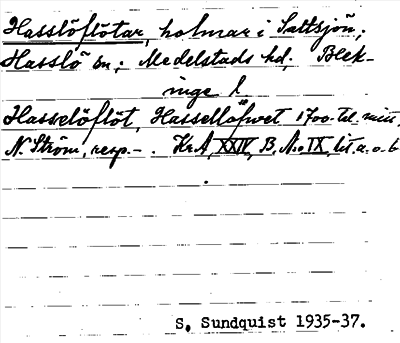 Hasslöflötar, holmar i Saltsjön;
Hasslö sn; Medelstads hd; Blek-
inge l
Hasselöflöt, Hassellöfwet 1700-tal. mitt,
N. Ström, resp. -. Kr. A, XXIV, B, N:o IX, lit. a. o. b
S. Sundquist 1935-37.